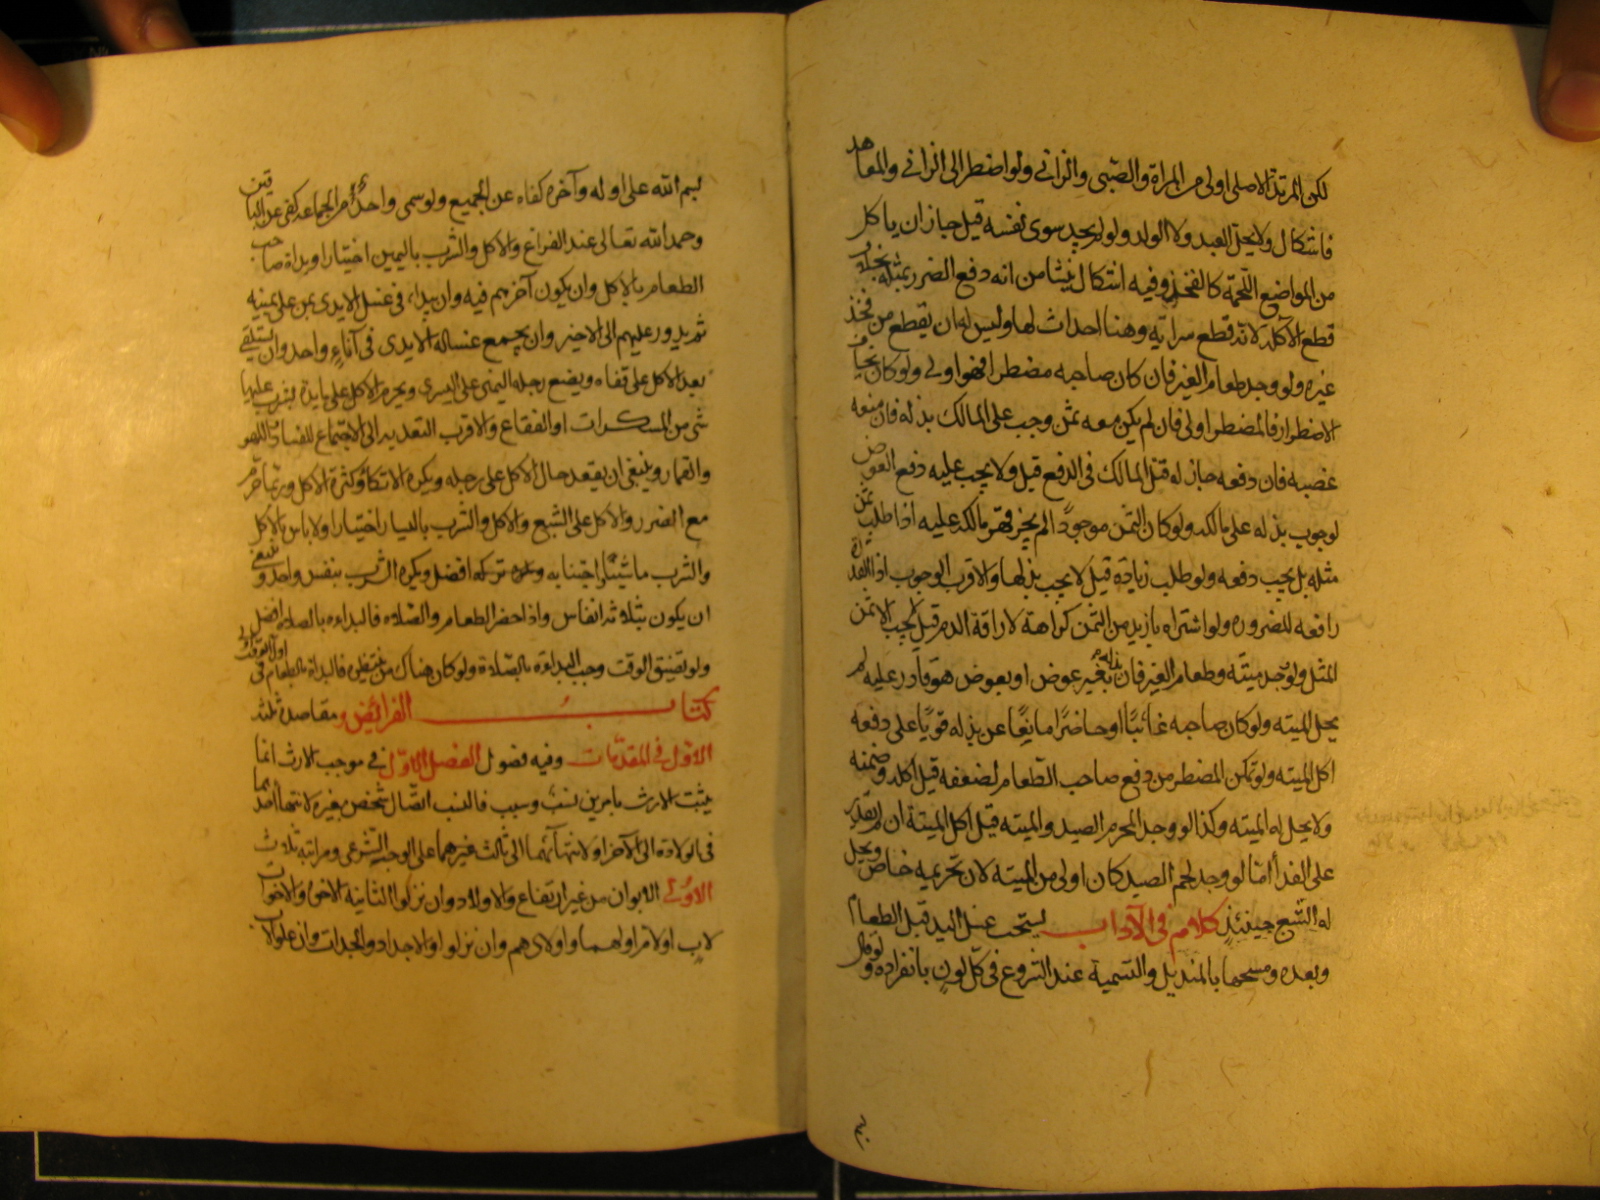 لكن المرتد الاصلى اولى من المراة والصّبى والزانى ولو اضطر الى الزانى والمعاهد
فاشكال ولا يحل العبد ولا الولد ولو لم يجد سوى نفسه قيل جاز ان ياكل
من المواضع اللحمة كالفخذ وفيه اشكال ينشا من انه دفع الضرر بمثله بخلاف
قطع الآكلة لانه قطع سراية وهنا احداث لها وليس له ان يقطع من فخذ
غيره ولو وجد طعام الغير فان كان صاحبه مضطرا فهو اولى ولو كان يخاف
الاضطرار فالمضطر اولى فان لم يكن معه ثمن وجب على المالك بذله فان منعه
غصبه فان دفعه جاز له قتل المالك فى الدفع قيل ولا يجب عليه دفع العوض
لوجوب بذله على مالكه ولو كان الثمن موجودًا لم يجز قهر مالكه عليه اذا طلب ثمن
مثله بل يجب دفعه ولو طلب زيادة قيل لا يجب بذلها والاقرب الوجوب اذا القدرة
رافعه للضروره ولو اشتراه بازيد من الثمن كراهة لاراقة الدم قيل لا يجب الا ثمن
المثل ولو وجد ميتة وطعام الغير فان بذله بغير عوض او بعوض هو قادر عليه لم
يحل الميته ولو كان صاحبه غائبًا او حاضرًا مانعًا عن بذله قويًا على دفعه
اكل الميته ولو تمكن المضطر من دفع صاحب الطعام لضعفه قيل اكله وضمنه
ولا يحل له الميته وكذا لو وجد المحرم الصيد والميته قيل اكل الميتة ان لم يقدر
على الفداء امّا لو وجد لحم الصيد كان اولى من الميتة لان تحريمه خاص ويحل
له الشبع حينئذٍ كلام فى الآداب يستحب غسل اليد قبل الطعام
وبعده ومسحها بالمنديل والتسمية عند الشروع فى كل لون بانفراده ولو قال
بسم
بسم الله على اوله وآخره كفاه عن الجميع ولو سمى واحدٌ من الجماعه كفى عن الباقين
وحمد الله تعالى عند الفراغ والاكل والشرب باليمين اختيارا وبداة صاحب
الطعام بالاكل وان يكون آخرهم فيه وان يبداء فى غسل الايدى بمن على يمينه
ثم يدور عليهم الى الاخير وان يجمع غسالة الايدى فى آناءٍ واحد وان يستلقى
بعد الاكل على قفاه ويضع رجله اليمنى على اليسرى ويحرم الاكل على مايدة يشرب عليها
شى من المسكرات او الفقاع والاقرب التعديه الى الاجتماع للفساد واللهو
والقمار وينبغى ان يقعد حال الاكل على رجله ويكره الاتكاء وكثرة الاكل وربما حرم
مع الضرر والاكل على الشبع والاكل والشرب باليسار اختيارا ولا باس بالاكل
والشرب ماشيًا واجتنابه وتركه افضل ويكره الشرب بنفس واحد وينبغى
ان يكون بثلاثه انفاس واذا حضر الطعام والصّلاه فالبداءه بالصلاه افضل
ولو تضيق الوقت وجب البداءة بالصّلاة ولو كان هناك من ينتظره فالبداة بالطعام فى اول الوقت اولى
كتاب الفرائض ومقاصده ثلثه
الاوّل فى المقدّمات وفيه فصول الفصل الاوّل فى موجب الارث انما
يثبت الارث بامرين نسب وسبب فالنسب اتصال شخص بغيره لانتهاء احدهما
فى الولادة الى الآخر او لانتهائهما الى ثالث غيرهما على الوجه الشرعى ومراتبه ثلاث
الاولى الابوان من غير ارتفاع والاولاد وان نزلوا الثانية الاخوة والاخوات
لاب او لام او لهما واولادهم وان نزلوا والاجداد والجدات وان علوا لاب